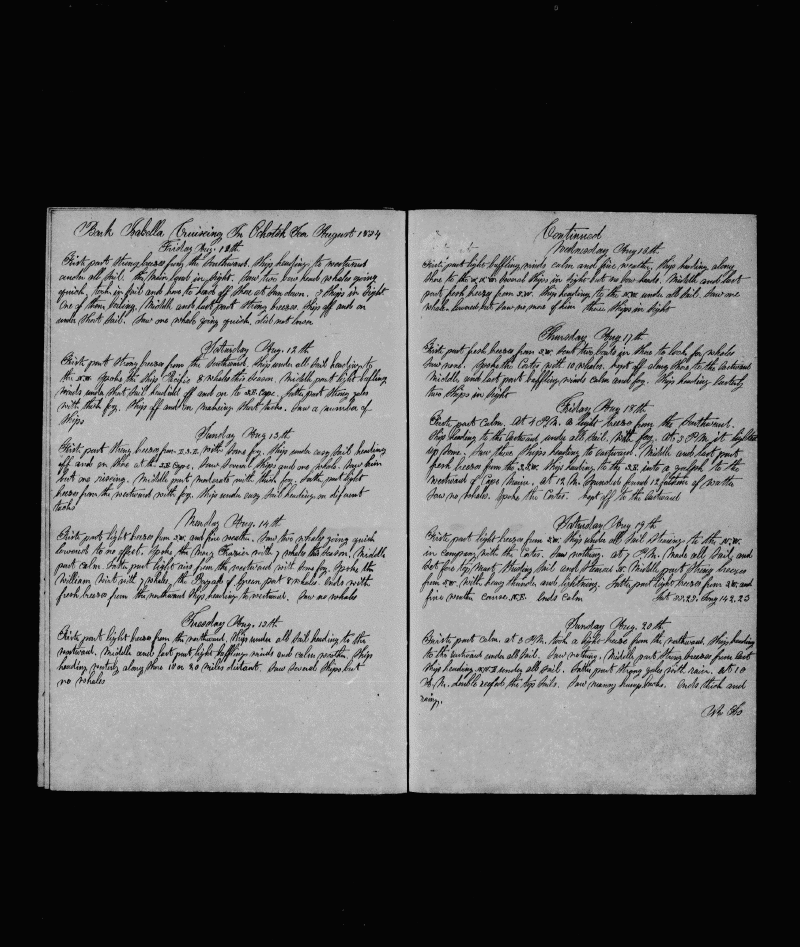 Bark Isabella Cruising In Ochotsk Sea August 1854
Friday Aug. 11th
First part Strong breezes from the Southward. Ships heading to westward
under all Sail. the main land in Sight. Saw two bow head whales going
quick, took in Sail and hove to head off Shore at Sun down. 3 Ships in Sight
one of them boiling. Middle and last part Strong breezes Ship off and on
under Short Sail. Saw one whale going quick, did not lower
Saturday Aug. 12th
First part Strong breezes from the Southward. Ship under all Sail heading to
the N.W. Spoke the Ship Pacific 8 whales this Season. Middle part light baffling
winds under Short Sail headed off and on to S.E. Cape. Latter part Strong gales
with thick fog. Ship off and on makeing Short tacks. Saw a number of
Ships
Sunday Aug 13th
First part Strong breezes from E.S.E. with Some fog. Ship under easy Sail heading
off and on Shore at the S.E. Cape. Saw Several Ships and one whale. Saw him
but one riseing. Middle part moderate with thick fog. Latter part light
breezes from the westward with fog. Ship under easy Sail heading on different
tacks
Monday Aug. 14th
First part light breezes from S.W. and fine weather. Saw two whales going quick
lowered to no effect. Spoke the Mary Frazier with 7 whales this Season. Middle
part calm. Latter part light airs from the westward with Some fog. Spoke the
William Wirt with 7 whales, the Brigade of Green port 8 whales. Ends with
fresh breezes from the northward Ship heading to westward. Saw no whales
Tuesday Aug. 15th
First part light breeze from the northward, Ship under all Sail heading to the
westward. Middle and last part light baffling winds and calm weather. Ship
heading westerly along Shore 15 or 20 miles distant. Saw Several Ships but
no whales
Continued
Wednesday Aug 16th
First part light baffling winds calm and fine weather. Ship heading along
Shore to the Several Ships in Sight but no bow heads. Middle and last
part fresh breezes from S.W. Ship heading to the N.W. under all Sail. Saw one
whale lowered but Saw no more of him three Ships in Sight
Thursday Aug 17th
First part fresh breezes from S.W. Sent two boats in Shore to look for whales
Saw none. Spoke the Cortes with 10 whales. kept off along Shore to the Eastward
Middle and last part baffling winds calm and fog. Ship heading Easterly
two Ships in Sight
Friday Aug 18th
First part Calm. At 4 P.M. a light breeze from the Southward.
Ship heading to the Eastward, under all Sail. With fog. at 5 P.M. it lighted
up Some. Saw three Ships heading to eastward. Middle and last part
fresh breezes from the S.S.W. Ship heading to the S.E. into a gulph to the
westward of Cape at 12 M. Sounded found 12 fathoms of water
Saw no whales. Spoke the Cortes. kept off to the Eastward
Saturday Aug 19th
First part light breezes from S.W. Ship under all Sail Steering to the N.W.
in company with the Cortes. Saw nothing. at 7 P.M. Made all Sail, and
Set fore top mast Studing Sail and Steared N. Middle part Strong breezes
from S.W. with heavy thunder and lightning. Latter part light breezes from S.W. and
fine weather course N.E. Ends Calm Lat 55.23. Long 142.23
Sunday Aug. 20th
First part calm. at 3 P.M. took a light breeze from the northward. Ship heading
to the Eastward under all Sail. Saw nothing. Middle part Strong breezes from East
Ship heading N.N.E. under all Sail. Latter part Strong gales with rain. At 10
A.M. double reefed the top Sails. Saw many hump backs. Ends thick and
rainy.